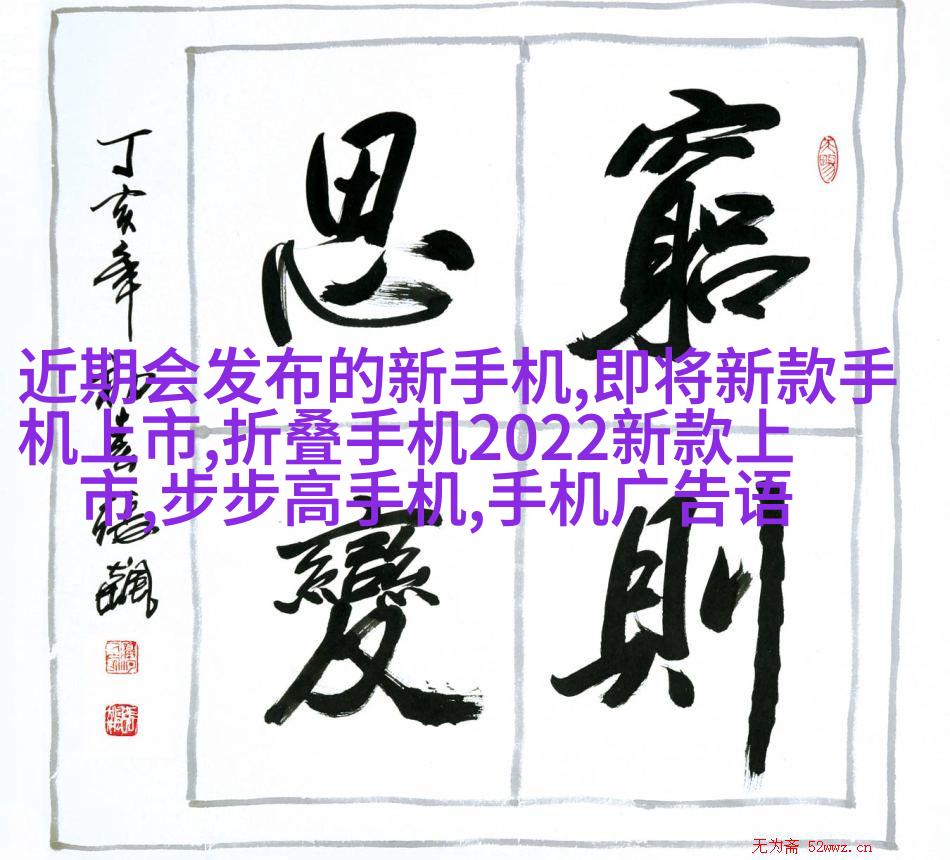 窮則
思變
丁亥年
近期会发布的新手机,即将新款手
机上市,折叠手机2022新款上
市,步步高手机,手机广告语
无为斋 52wwz.cn